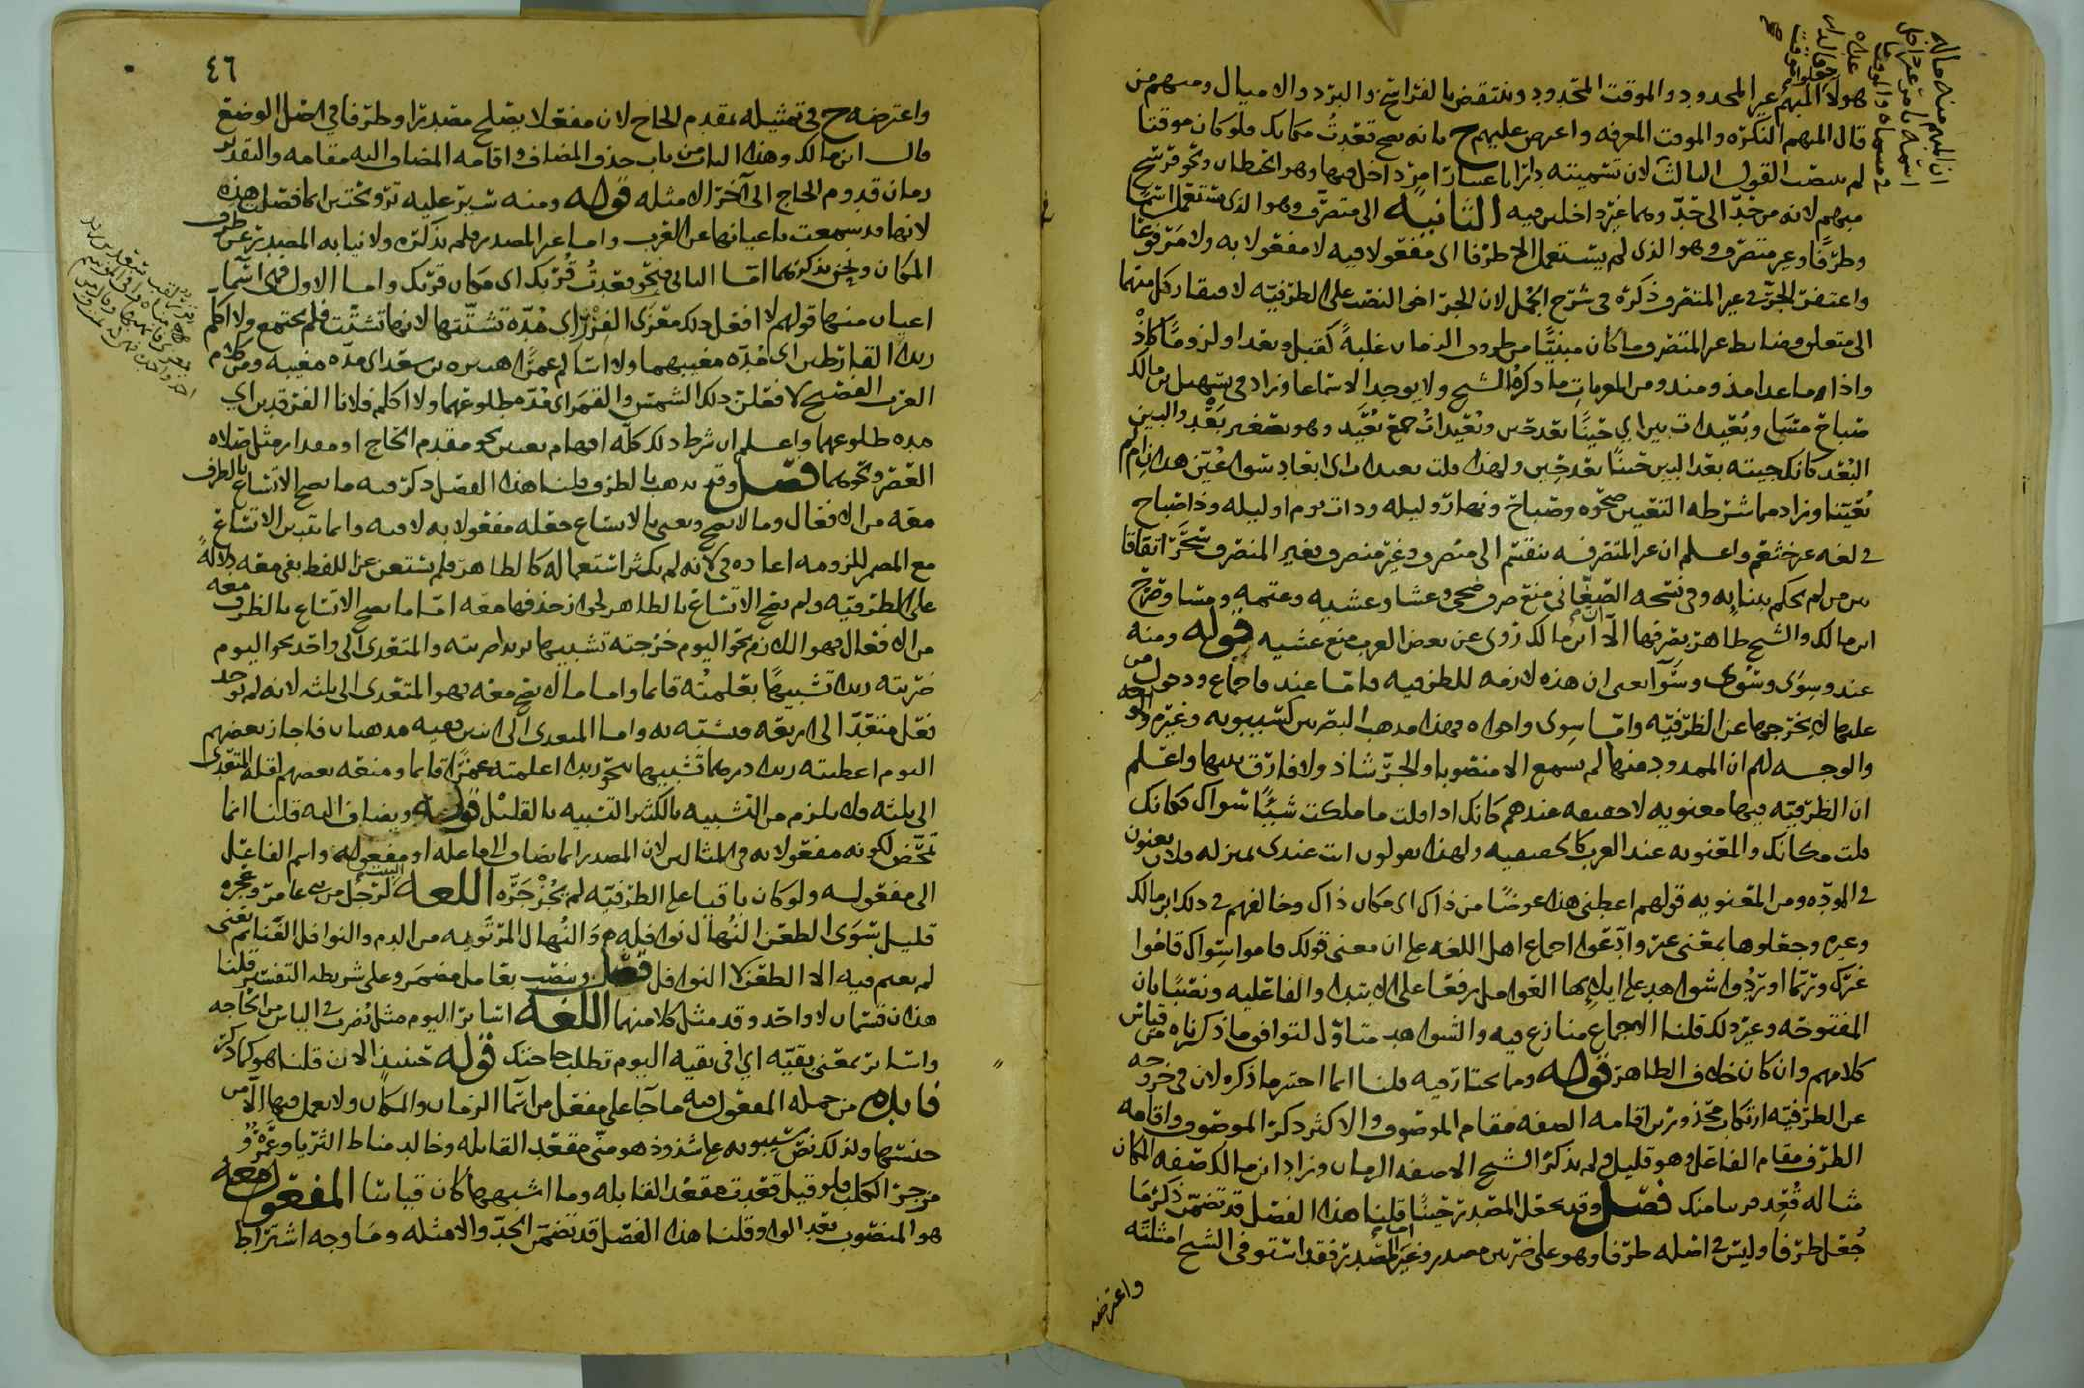 هولا المبهم غير المحدود والموقت المحدود وينتقض بالفراسخ والبرد والاميال ومنهم من
قال المبهم النكره والموقت المعرفه واعترض عليهم ح بانه يصح قعدت مكانك فلو كان موقتا
لم ينصب القول الثالث لان تسميته دارا باعتبار امر داخل فيها وهو الحيطان ونحو فرسخ
مبهم لانه من حد الى حد وهما غير داخلين فيه الثانية الى متصرف وهو الذى يستعمل اسما
وظرفا وغير متصرف وهو الذى لم يستعمل الا ظرفا اى مفعولا فيه لا مفعولا به ولا مرفوعا
واغتفر الجر فى غير المتصرف ذكره فى شرح الجمل لان الجر اخى النصب على الظرفيه لافتقار كل منهما
الى متعلق وضابط غير المتصرف ما كان مبنيا من ظروف الزمان غلبة كقبل وبعد اولزوما كاذ
واذا ما عدا مذ ومنذ ومن المعربات ما ذكره الشيخ ولا يوجد الا سماعا وزاد فى تسهيل بن مالك
صباح مساء وبعيدات بين اي حينا بعد حين وبعيدات جمع بعيد وهو تصغير بعد والبين
البعد كانك جيته بعد البين حينا بعد حين ولهذا قلت بعيدات اى ابعاد سوا عين هذا ام لم
يعينا وزاد مما شرطه التعيين ضحوه وصباح ونهار وليله وذات يوم او ليله وذا صباح
فى لغه خثعم واعلم ان غير المتصرفه ينقسم الى منصرف وغير منصرف فغير المنصرف سحر اتفاقا
من من لم يحكم ببنايه وفى نسخه الصغانى منع صرف ضحى وعشا وعشيه وعتمه ومسا وصرح
ابن مالك والشيخ ظاهر بصرفها الا ان ابن مالك روى عن بعض العرب منع عشيه قوله ومنه
عند وسوى وسوى وسوآ يعنى ان هذه لازمه للظرفيه فاما عند فاجماع ودخول من
عليها لا يخرجها عن الظرفيه واما سوى واخواه فهذا مذهب البصريين كسيبويه وغيره
والوجه لهم ان الممدود منها لم يسمع الا منصوبا والجر شاذ ولا فارق بينها واعلم
ان الظرفيه فيها معنويه لا حقيقه عندهم كانك اذا قلت ما ملكت شيئا سواك فكانك
قلت مكانك والمعنويه عند العرب كالحقيقيه ولهذا يقولون انت عندى بمنزله فلان يعنون
فى المودّه ومن المعنويه قولهم اعطنى هذا عوضا من ذاك اى مكان ذاك وخالفهم فى ذلك ابن مالك
وغيره وجعلوها بمعنى غير وادّعوا اجماع اهل اللغه على ان معنى قولك قاموا سواك قاموا
غيرك وربما اوردوا شواهد على ايلائها العوامل رفعا على الابتداء والفاعليه ونصبا بان
المفتوحه وغير ذلك قلنا الاجماع منازع فيه والشواهد متاوّل لتوافق ما ذكرناه من قياس
كلامهم وان كان خلاف الظاهر قوله ومما يختار فيه قلنا انما اختير ما ذكره لان فى خروجه
عن الظرفيه ارتكاب محذورين اقامه الصفه مقام الموصوف والاكثر ذكر الموصوف واقامه
الظرف مقام الفاعل وهو قليل ولم يذكر الشيخ الا صفه الزمان وزاد ابن مالك صفه المكان
مثاله قعد قريبا منك فصل وقد يجعل المصدر حينا قلنا هذا الفصل قد تضمن ذكر ما
جعل ظرفا وليس فى اصله ظرفا وهو على ضربين مصدر وغير المصدر فقد استوفى الشيخ امثلته
واعترضه
٤٦
واعترضه ح فى تمثيله بمقدم الحاج لان مفعلا يصلح مصدرا وظرفا فى اصل الوضع
قال ابن مالك وهذا الباب من باب حذف المضاف واقامه المضاف اليه مقامه والتقدير
زمان قدوم الحاج الى آخر الامثله قوله ومنه سير عليه ترويحتين انما فصل هذه
لانها قد سمعت باعيانها عن العرب واما غير المصدر فلم يذكره ولا نيابه المصدر عن ظرف
المكان ونحن نذكرهما اما الثانى فنحو قعدت قربك اى مكان قربك واما الاول فهى اسما
اعيان منها قولهم لا افعل ذلك معزى الفزر اى مده تشتتها لانها تشتت فلم يجتمع ولا اكلم
زيدا القارظين اى مده مغيبهما ولا اسالم عمرا هبيره بن سعد اى مده مغيبه ومن كلام
العرب الفصيح لا فعلن ذلك الشمس والقمر اى مده طلوعهما ولا اكلم فلانا الفرقدين اي
مده طلوعهما واعلم ان شرط ذلك كله افهام تعيين نحو مقدم الحاج او مقدار مثل صلاه
العصر ونحوهما فصل وقد يذهب بالظرف قلنا هذا الفصل ذكر فيه ما يصح الاتساع بالظرف
معه من الافعال وما لا يصح ونعنى بالاتساع جعله مفعولا به لا فيه وانما يتبين الاتساع
مع المضمر للزومه اعاده فى لانه لم يكثر استعماله كالظاهر فلم يستغن عن اللفظ بفى معه دلاله
على الظرفيه ولم يصح الاتساع بالظاهر لجواز حذفها معه اما ما يصح الاتساع بالظرف معه
من الافعال فهو اللازم نحو اليوم خرجته تشبيها بزيد ضربته والمتعدى الى واحد نحو اليوم
ضربته زيدا تشبيها بعلمته قائما واما ما لا يصح معه فهو المتعدى الى ثلثه لانه لم يوجد
فعل متعد الى اربعه فيشبه به واما المتعدى الى اثنين ففيه مذهبان فاجاز بعضهم
اليوم اعطيته زيدا درهما تشبيها بنحو زيدا اعلمته عمرا قائما ومنعه بعضهم لقله المتعدى
الى ثلثه فلا يلزم من التشبيه بالكثير التشبيه بالقليل قوله ويضاف اليه قلنا انما
تمحض لكونه مفعولا به فى المثالين لان المصدر انما يضاف الى فاعله او مفعوله واسم الفاعل
الى مفعوله ولو كان باقيا على الظرفيه لم يجز جره اللغة البيت لرجل من بنى عامر وعجزه
قليل سوى الطعن النهال نوافله والنهال المرتويه من الدم والنوافل الغنائم يعنى
لم يغنم فيه الا الطعن لا النوافل فصل وينصب بعامل مضمر وعلى شريطه التفسير قلنا
هذان قسمان لا واحد وقد مثل كلا منهما اللغة اسائر اليوم مثل يضرب فى الياس من الحاجه
واسائر بمعنى بقيه اي افى بقيه اليوم تطلب حاجتك قوله حينيذ الان قلنا هو كما ذكر
فايده من جمله المفعول فيه ما جآ على مفعل من اسما الزمان والمكان ولا يعمل فيها الا من
جنسها ولذلك نص سيبويه على شذوذ هو منى مقعد القابله وخالد مناط الثريا وعمرو
مزجر الكلب فلو قيل قعدت مقعد القابله وما اشبهها كان قياسا المفعول معه
هو المنصوب بعد الواو قلنا هذا الفصل قد تضمن الحد والامثله وما وجه اشتراط